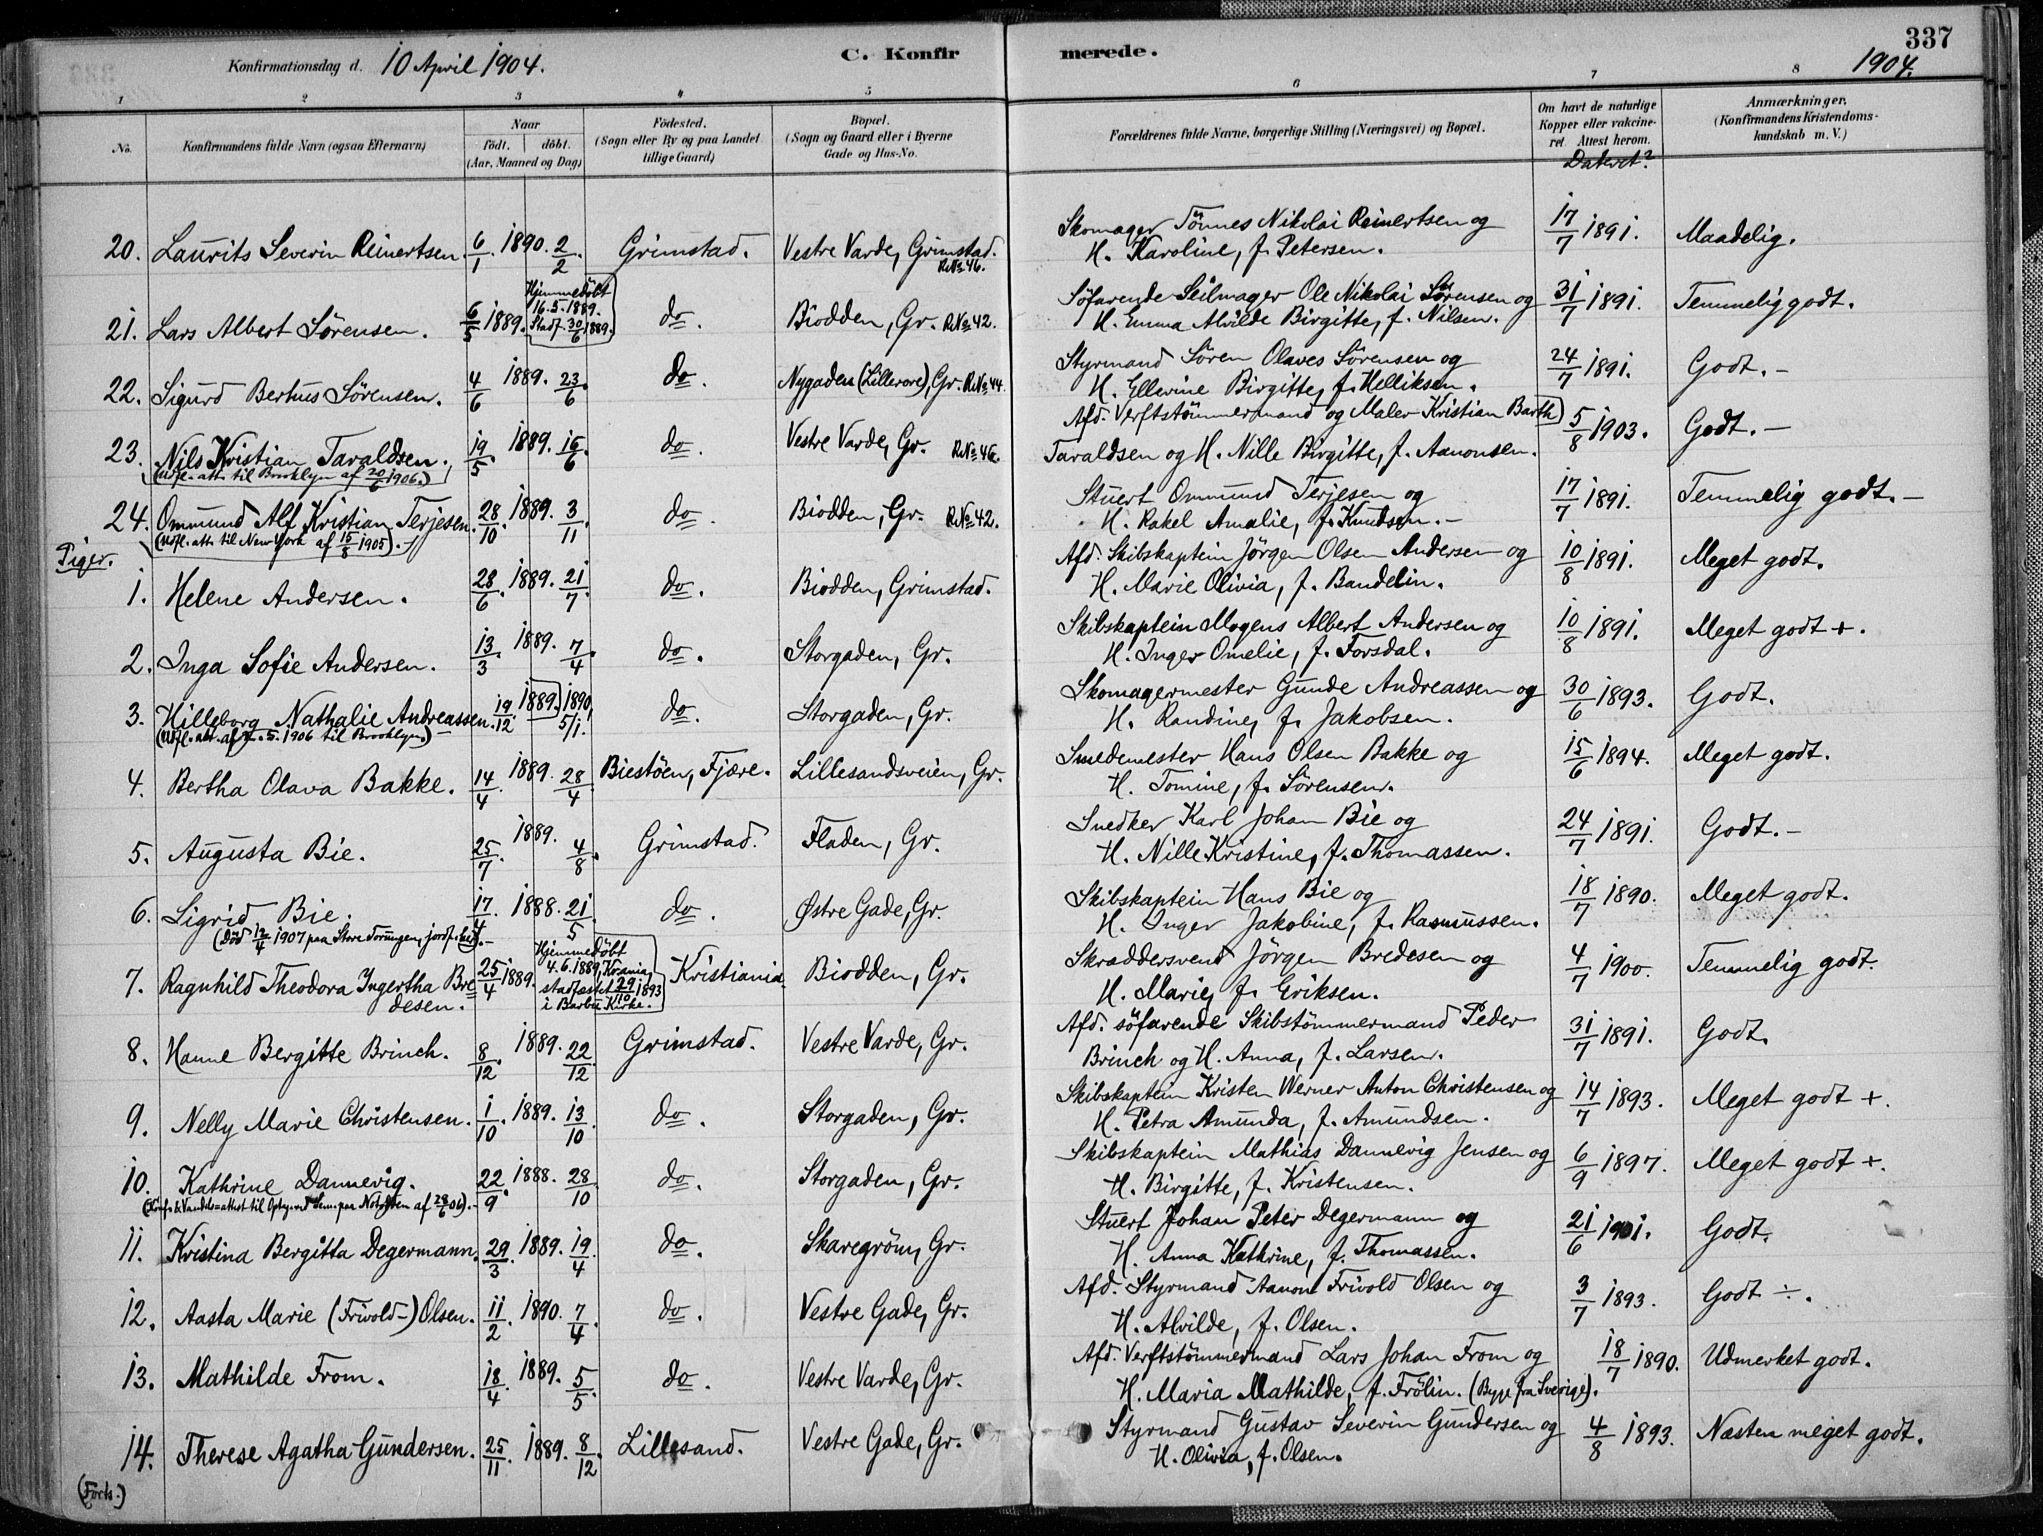 337
Konfirmationsdag d. 10 April 1904. C. Konfirmerede. 1904.
1 2 3 4 5 6 7 8
No. Konfirmandens fulde Navn (ogsaa Efternavn) Naar født. døbt. (Aar, Maaned og Dag) Fødested. (Sogn eller By og paa Landet tillige Gaard) Bopæl. (Sogn og Gaard eller i Byerne Gade og Hus-No. Forældrenes fulde Navne, borgerlige Stilling (Næringsvei) og Bopæl. Om havt de naturlige Kopper eller vakcineret. Attest herom. Dateret? Anmærkninger. (Konfirmandens Kristendomskundskab m. V.)
20. Laurits Severin Reinertsen. 6/1. 1890. 2/2 Grimstad. Vestre Varde, Grimstad. R.№ 46. Skomager Tönnes Nikolai Reinertsen og H. Karoline, f. Petersen. 17/7 1891. Maadelig.
21. Lars Albert Sörensen. 6/5 1889. Hjemmedöbt 16.5.1889. Stadf. 30/6 1889. do. Biodden, Gr. R.№ 42. Söfarende Seilmager Ole Nikolai Sörensen og H. Emma Alvilde Birgitte, f. Nilsen. 31/7 1891. Temmelig godt.
22. Sigurd Bertus Sörensen. 4/6 1889. 23/6. do. Nygaden (Lilletorv), Gr. R.№ 44. Styrmand Sören Olaves Sörensen og H. Ellevine Birgitte, f. Helliksen. 24/7 1891. Godt.-
23. Nils Kristian Taraldsen. 19/5. 1889. 16/6 do. Vestre Varde, Gr. R.№ 46. Afd. Verftstömmermand og Maler Kristian Barth Taraldsen og H. Nille Birgitte, f. Aanonsen. 5/8 1903. Godt.-
(Udfl.-att. til Brooklyn af 20/6 1906.)
24. Ommund Alf Kristian Terjesen. 28/10. 1889. 3/11. do. Biodden, Gr. R.№ 42. Stuert Ommund Terjesen og H. Rakel Amalie, f. Knudsen.- 17/7 1891. Temmelig godt.-
(Udfl.-att. til New York af 15/8 1905).-
Piger.
1. Helene Andersen. 28/6. 1889. 21/7. do. Biodden, Grimstad. Afd. Skibskaptein Jörgen Olsen Andersen og H. Marie Olivia, f. Bandelin. 10/8 1891. Meget godt.
2. Inga Sofie Andersen. 13/3. 1889. 7/4. do. Storgaden, Gr. Skibskaptein Mogens Albert Andersen og H. Inger Omelie, f. Forsdal. 10/8 1891. Meget godt +.
3. Hilleborg Nathalie Andreassen. 19/12. 1889. 1890, 5/1. do. Storgaden, Gr. Skomagermester Gunde Andreassen og H. Randine, f. Jakobsen. 30/6 1893. Godt.
(Udfl. att. af 7.5.1906 til Brooklyn)
4. Bertha Olava Bakke. 14/4. 1889. 28/4. Biestöen, Fjære. Lillesandsveien, Gr. Smedemester Hans Olsen Bakke og H. Tomine, f. Sörensen. 15/6 1894. Meget godt.
5. Augusta Bie. 25/7. 1889. 4/8. Grimstad. Fladen, Gr. Snedker Karl Johan Bie og H. Nille Kristine, f. Thomassen. 24/7 1891. Godt.-
6. Sigrid Bie. 17/4. 1888. 21/5 do. Østre Gade, Gr. Skibskaptein Hans Bie og H. Inger Jakobine, f. Rasmussen. 18/7 1890. Meget godt.
(Död 12/4 1907 paa Store Torungen, jordf. her).-
7. Ragnhild Theodora Ingertha Bredesen. 25/4 1889. Hjemmedöbt 4.6.1889, Krania, stadfæstet 29/10 1893 i Barbu Kirke. Kristiania. Biodden, Gr. Skræddersvend Jörgen Bredesen og H. Marie, f. Eriksen. 4/7 1900. Temmelig godt.
8. Hanne Bergitte Brinch. 8/12. 1889. 22/12 Grimstad. Vestre Varde, Gr. Afd. söfarende Skibstömmermand Peder Brinch og H. Anna, f. Larsen. 31/7 1891. Godt.
9. Nelly Marie Christensen. 1/10. 1889. 13/10. do. Storgaden, Gr. Skibskaptein Kristen Werner Anton Christensen og H. Petra Amunda, f. Amundsen. 14/7 1893. Meget godt +.
10. Kathrine Dannevig. 22/9. 1888. 28/10 do. Storgaden, Gr. Skibskaptein Mathias Dannevig Jensen og H. Birgitte, f. Kristensen. 6/9 1897. Meget godt +.
(Konf. & Vandels=attest til Optag. ved Sem. paa Notodden af 28/6 06).-
11. Kristina Bergitta Degermann. 29/3. 1889. 19/4. do. Skaregröm, Gr. Stuert Johan Peter Degermann og H. Anna Kathrine, f. Thomassen. 21/6 1901. Godt.
12. Aasta Marie (Frivold-) Olsen. 11/2. 1890. 7/4. do. Vestre Gade, Gr. Afd. Styrmand Aanon Frivold Olsen og H. Alvilde, f. Olsen. 3/7 1893. Godt ÷.
13. Mathilde From. 18/4. 1889. 5/5. do. Vestre Varde, Gr. Afd. Verftstömmermand Lars Johan From og H. Maria Mathilde, f. Frölin. (Begge fra Sverige). 18/7 1890. Udmerket godt.
14. Therese Agatha Gundersen. 25/11. 1889. 8/12 Lillesand. Vestre Gade, Gr. Styrmand Gustav Severin Gundersen og H. Olivia, f. Olsen. 4/8 1893. Næsten meget godt.
(Forts.)